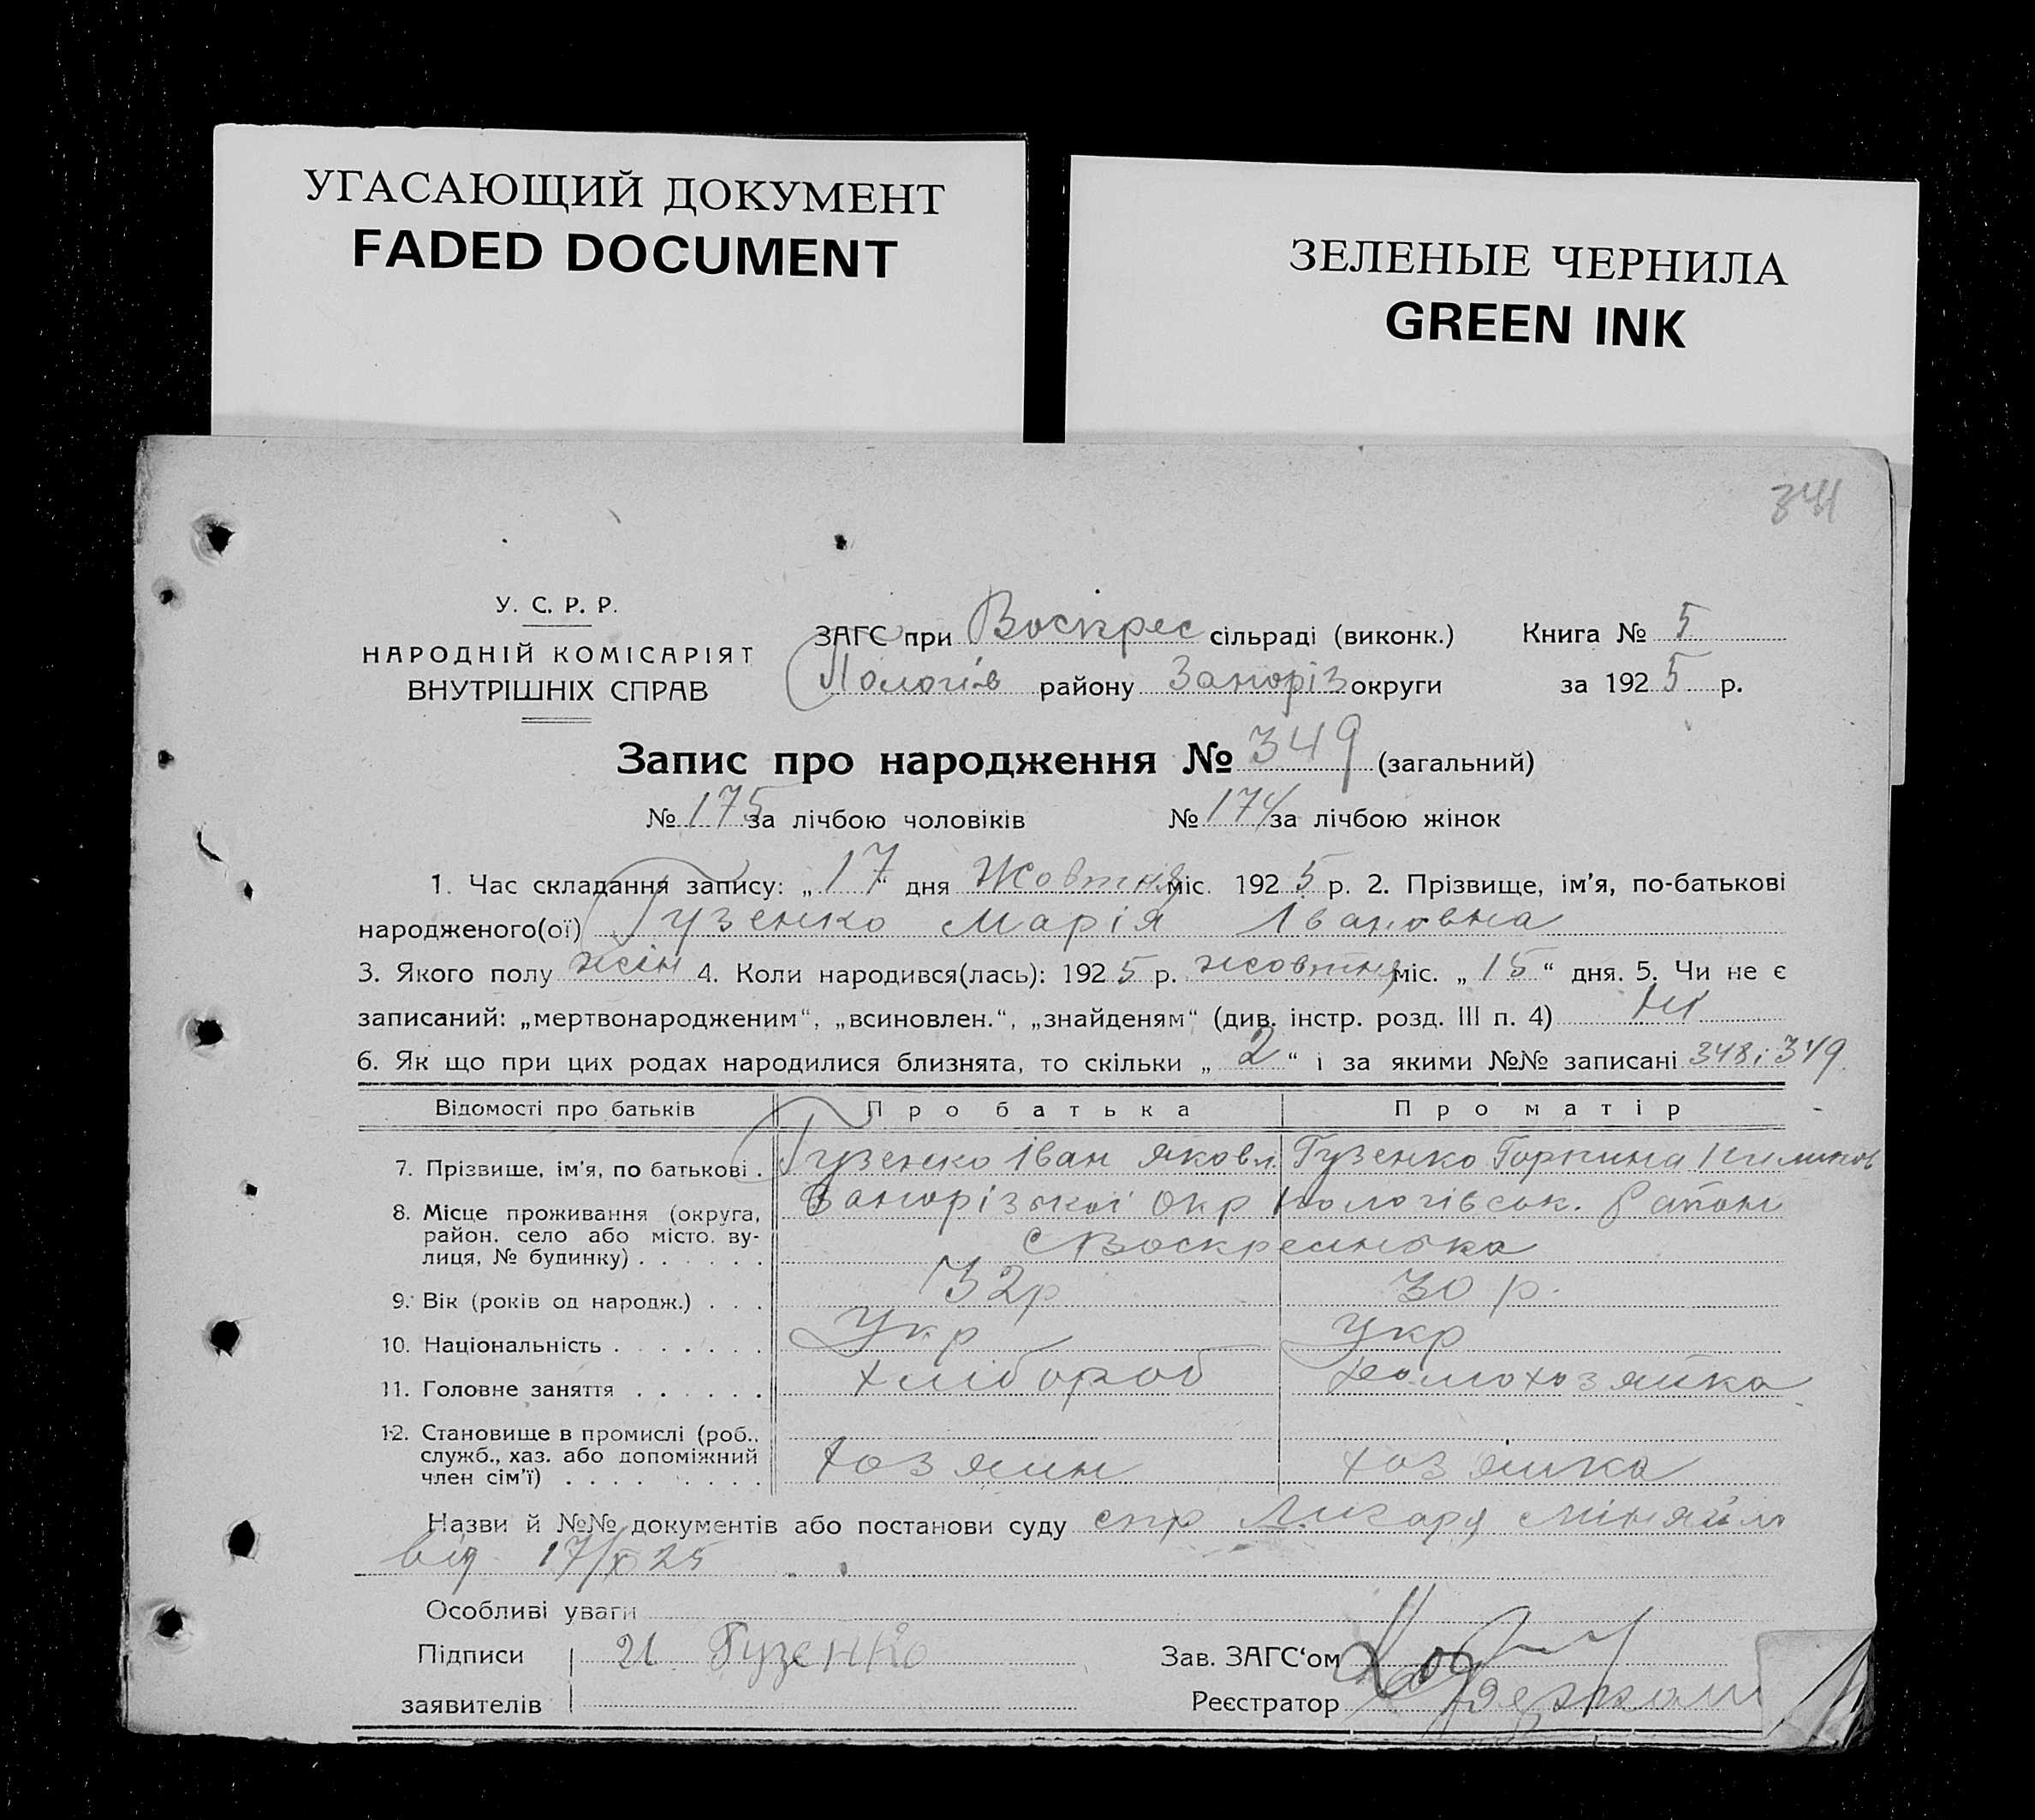 УГАСАЮЩИЙ ДОКУМЕНТ
FADED DOCUMENT
ЗЕЛЕНЫЕ ЧЕРНИЛА
GREEN INK
341
У. С. Р. Р.
НАРОДНІЙ КОМІСАРІЯТ
ВНУТРІШНІХ СПРАВ
ЗАГС при Воскрес сільраді (виконк.) Книга № 5
Пологів району Запоріз округи за 1925 р.
Запис про народження № 349 (загальний)
№ 175 за лічбою чоловіків № 174 за лічбою жінок
1. Час складання запису: „17“ дня Жовтня міс. 1925 р. 2. Прізвище, ім’я, по-батькові
народженого(ої) Гузенко Марія Івановна
3. Якого полу жін 4. Коли народився(лась): 1925 р. жовтня міс. „15“ дня. 5. Чи не є
записаний: „мертвонародженим“, „всиновлен.“, „знайденям“ (див. інстр. розд. III п. 4) ні
6. Як що при цих родах народилися близнята, то скільки „2“ і за якими №№ записані 348 і 349
Відомості про батьків Про батька Про матір
7. Прізвище, ім’я, по батькові . Гузенко Іван Яковл Гузенко Горпина
8. Місце проживання (округа, Запорізької Окр Пологівськ. Район
район. село або місто. ву-
лиця, № будинку) . . . . . . с Воскресенька
9. Вік (років од народж.) . . . 32р 30 р.
10. Національність . . . . . . . Укр Укр
11. Головне заняття . . . . . . хлібороб домохозяйка
12. Становище в промислі (роб..
служб., хаз. або допоміжний
член сім’ї) . . . . . . . . . хозяин хозяйка
Назви й №№ документів або постанови суду спр Лікаря Міняйло
від 17/X 25
Особливі уваги
Підписи И Гузенко Зав. ЗАГС‘ом
заявителів Реєстратор